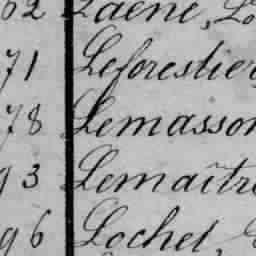 62 Laene, Lo
71 Leforestier,
78 Lemasson
93 Lemaître
96 Lochet,